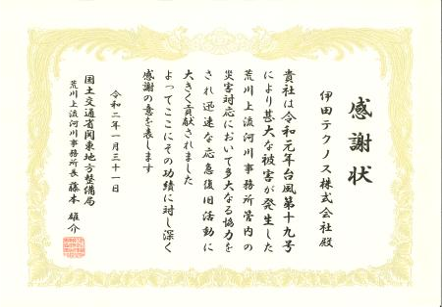 感謝状
伊田テクノス株式会社殿
貴社は令和元年台風第十九号
により甚大な被害が発生した
荒川上流河川事務所管内の
災害対応において多大なる協力を
され迅速な応急復旧活動に
大きく貢献されました
よってここにその功績に対し深く
感謝の意を表します
令和二年一月三十一日
国土交通省関東地方整備局
荒川上流河川事務所長 藤本雄介